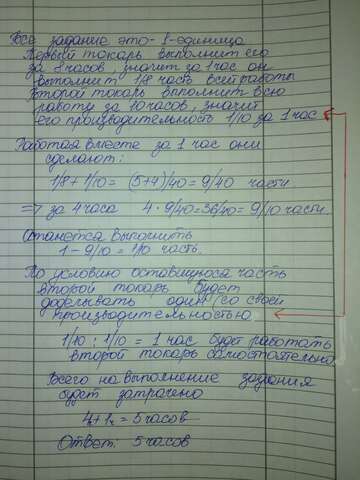 Все задание это-1-единица
Первый токарь выполнит его
за 8 часов, значит за 1 час он
выполнит 1/8 часть всей работы
Второй токарь выполнит всю
работу за 10 часов, значит
его производительность 1/10 за 1 час
Работая вместе за 1 час они
сделают:
1/8+1/10= (5+4)/40=9/40 части.
=> за 4 часа 4·9/40=36/40=9/10 части.
Останется выполнить
1-9/10=1/10 часть.
По условию оставшуюся часть
второй токарь будет
доделывать один со своей
производительностью
1/10:1/10=1 час будет работать
второй токарь самостоятельно
Всего на выполнение задания
будет затрачено
4+1=5 часов
Ответ: 5 часов